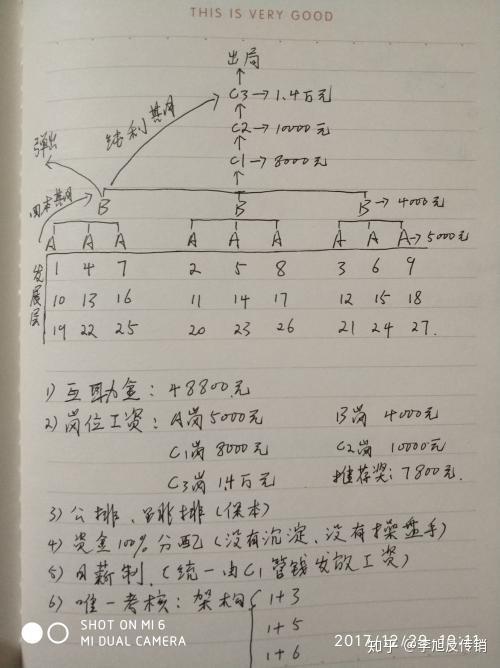 THIS IS VERY GOOD
出局
C3→1.4万元
C2→10000元
C1→8000元
纯利其用
弹出
回本其用
B B B→4000元
A A A A A A A A A→5000元
发展层
1 4 7 2 5 8 3 6 9
10 13 16 11 14 17 12 15 18
19 22 25 20 23 26 21 24 27.
1) 互助金: 48800元
2) 岗位工资: A岗5000元 B岗 4000元
C1岗 8000元 C2岗 10000元
C3岗 1.4万元 推荐奖: 7800元.
3) 公排、跟排(保本)
4) 资金100%分配(没有沉淀、没有操盘手)
5) 月薪制.(统一由C1管钱发放工资)
6) 唯一考核: 架构 1+3
1+5
1+6
SHOT ON MI 6
MI DUAL CAMERA
2017/12/29 10:11
知乎 @李旭反传销